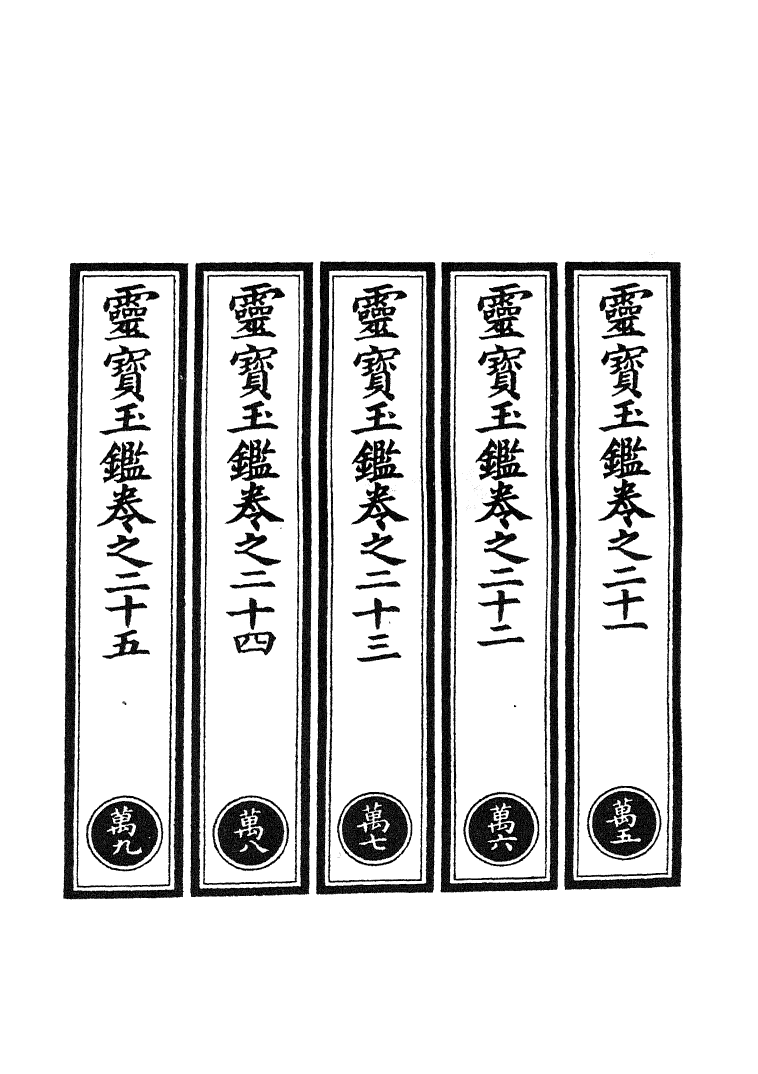 靈寶玉鑑卷之二十一
萬五
靈寶玉鑑卷之二十二
萬六
靈寶玉鑑卷之二十三
萬七
靈寶玉鑑卷之二十四
萬八
靈寶玉鑑卷之二十五
萬九